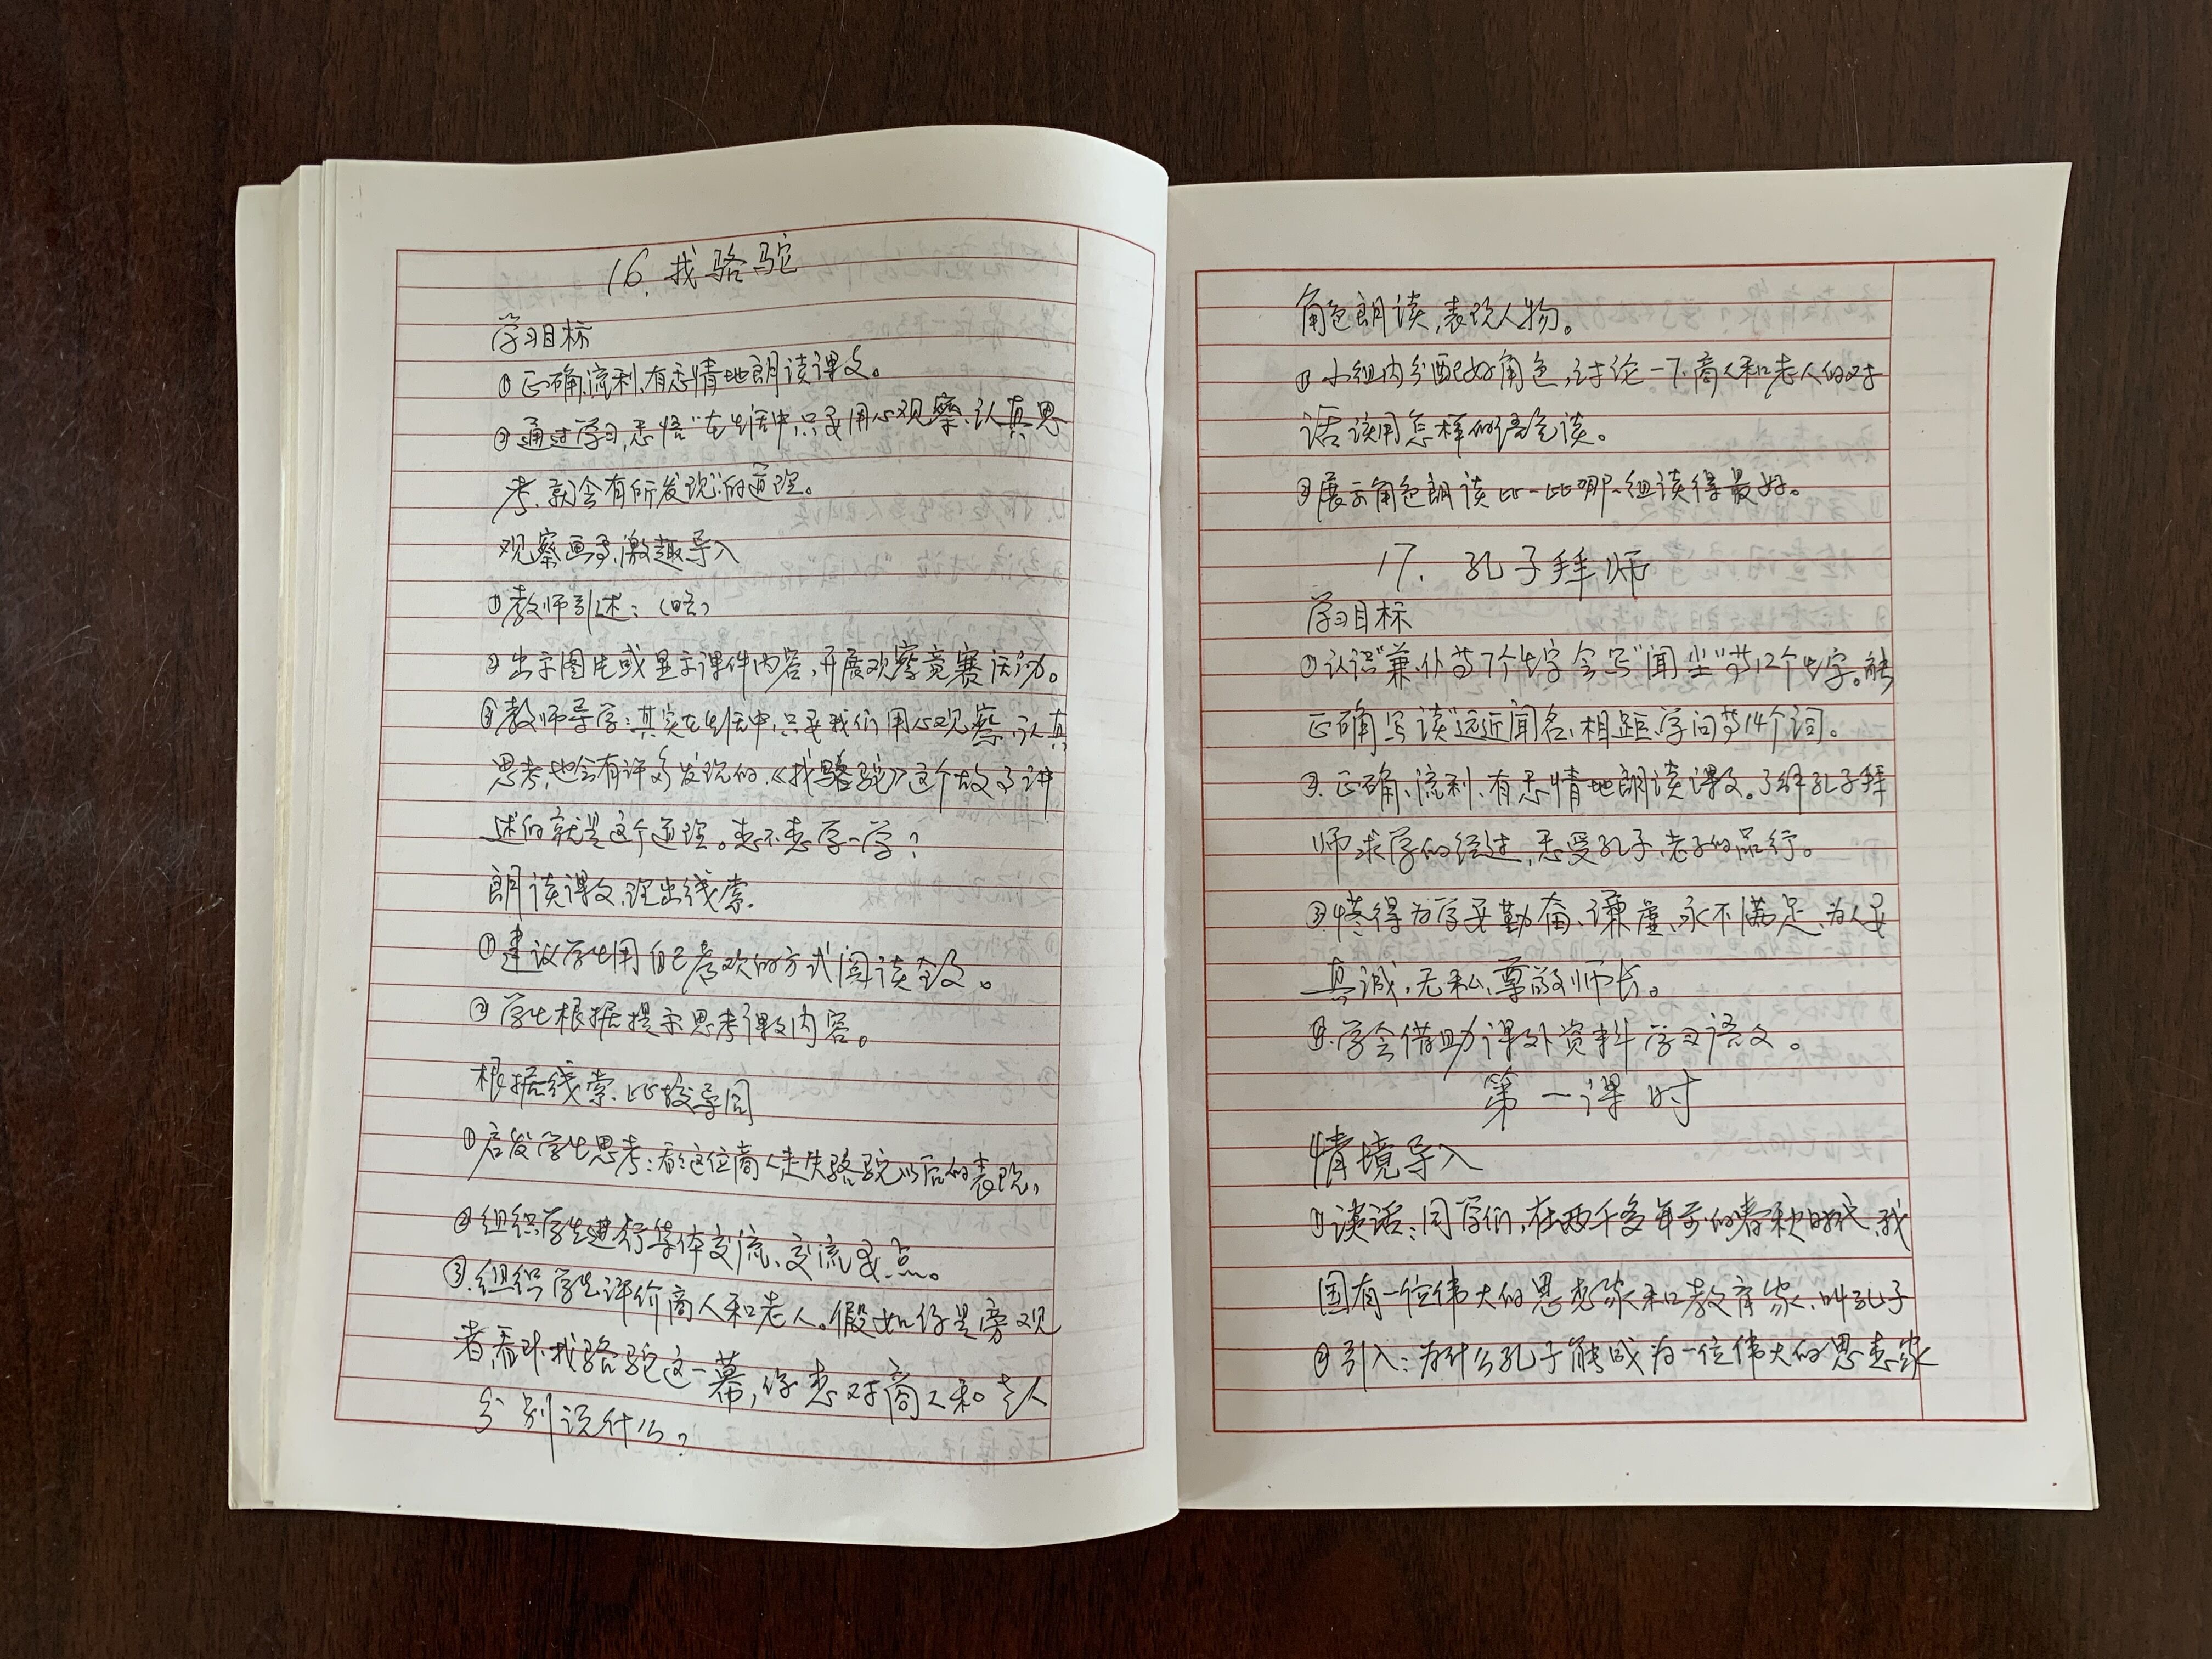 16. 找骆驼
学习目标
①正确、流利、有感情地朗读课文。
②通过学习,感悟“在生活中,只要用心观察、认真思
考、就会有所发现”的道理。
观察画面,激趣导入
①教师引述:(略)
②出示图片或显示课件内容,开展观察竞赛活动。
③教师导学:其实在生活中,只要我们用心观察、认真
思考,也会有许多发现的,《找骆驼》这个故事讲
述的就是这个道理。想不想学一学?
朗读课文,理出线索.
①建议学生用自己喜欢的方式阅读全文。
②学生根据提示思考课文内容。
根据线索、比较导同
①启发学生思考:看这位商人走失骆驼以后的表现,
②组织学生进行集体交流、交流要点。
③.组织学生评价商人和老人。假如你是旁观
者,看到找骆驼这一幕,你想对商人和老人
分别说什么?
角色朗读,表现人物。
①小组内分配好角色,讨论一下商人和老人的对
话该用怎样的语气读。
②展示角色朗读比一比哪一组读得最好。
17. 孔子拜师
学习目标
①认识“兼、仆等7个生字会写“闻、尘”等12个生字。能
正确写读“远近闻名、相距、学问等14个词。
②.正确、流利、有感情地朗读课文。了解孔子拜
师求学的经过,感受孔子、老子的品行。
③.懂得为学要勤奋、谦虚、永不满足,为人要
真诚、无私、尊敬师长。
④.学会借助课外资料学习语文。
第一课时
情境导入
①谈话:同学们,在两千多年前的春秋时代,我
国有一位伟大的思想家和教育家、叫孔子
②引入:为什么孔子能成为一位伟大的思想家